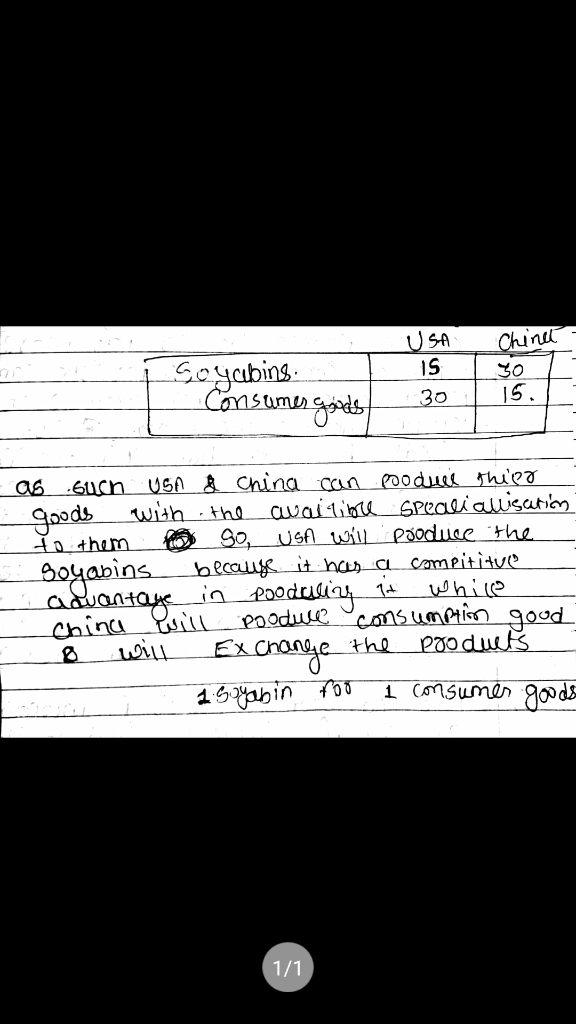 USA China
Soyabins. 15 30
Consumer goods 30 15.
as such USA & China can produce thier
goods with the availible specialisation
to them So, USA will produce the
Soyabins because it has a compititve
advantage in producing it while
China will produce consumption good
& will Exchange the products
1 Soyabin for 1 consumer goods
1/1